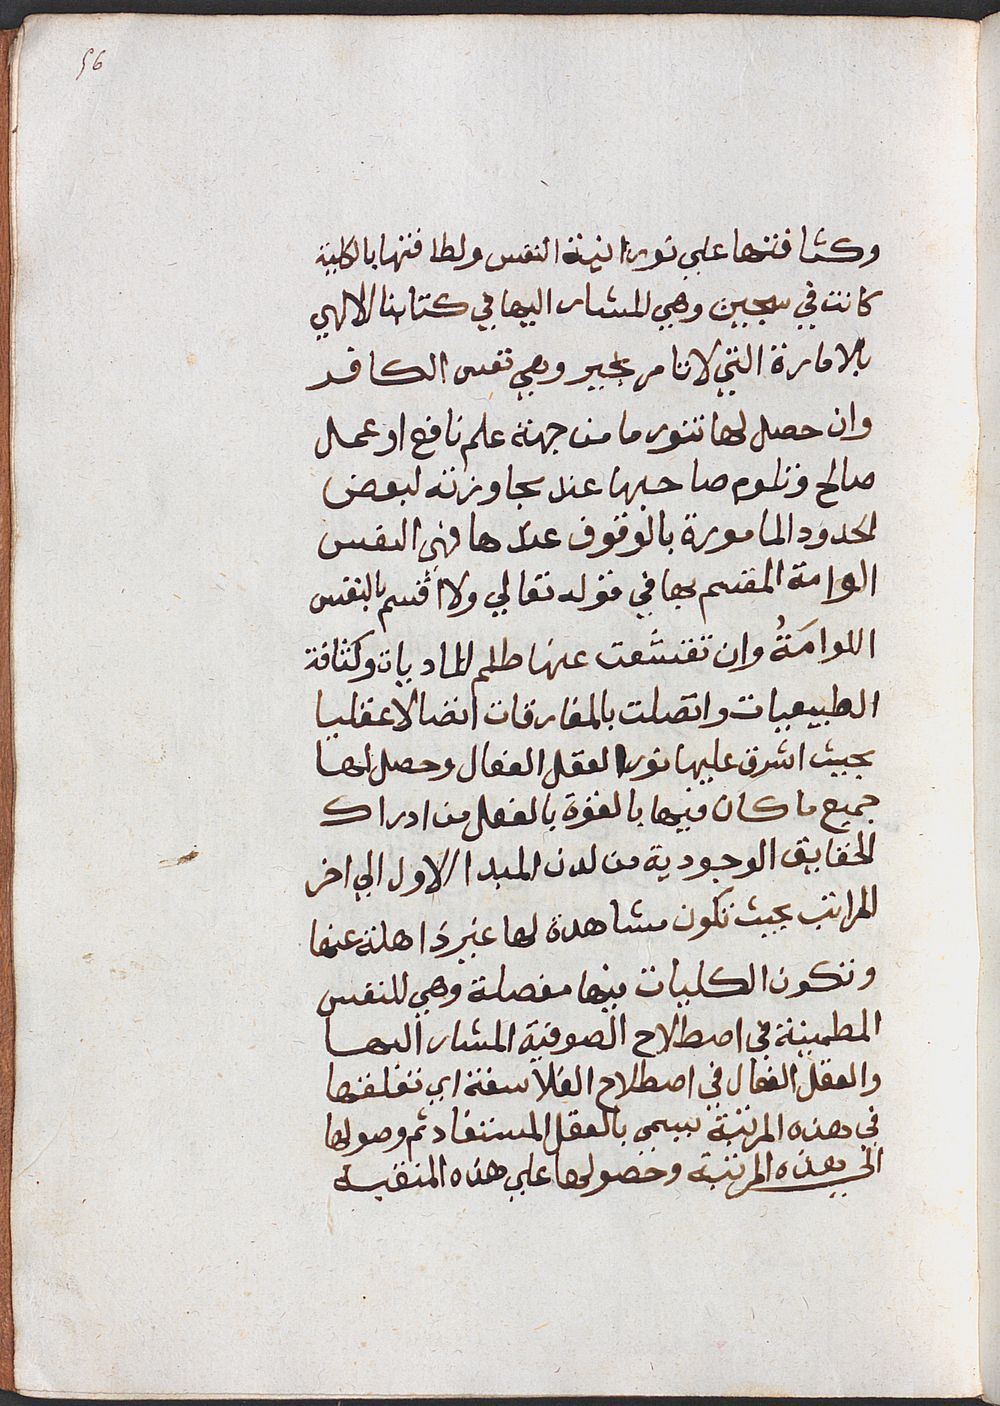 56
وكثافتها علي نورانية النفس ولطافتها بالكلية
كانت في سجين وهي المشار اليها في كتابنا الالهي
بالامارة التي لا تامر بخير وهي نفس الكافر
وان حصل لها تنور ما من جهة علم نافع او عمل
صالح وتلوم صاحبها عند مجاوزته لبعض
الحدود المامورة بالوقوف عندها فهي النفس
الوامة المقسم بها في قوله تعالي ولا اقسم بالنفس
اللوامَةُ وان تقشَّعت عنها ظلم الماديات وكثافة
الطبيعيات واتصلت بالمفارقات اتصالا عقليا
بحيث اشرق عليها نور العقل الفعال وحصل لها
جميع ما كان فيها بالقوة بالفعل من ادراك
الحقايق الوجودية من لدن المبدا الاول الي اخر
المراتب بحيث تكون مشاهدة لها غير ذاهلة عنها
وتكون الكليات فيها مفصلة وهي للنفس
المطمينة في اصطلاح الصوفية المشار اليها
والعقل الفعال في اصطلاح الفلاسفة اي تعلقها
في هذه المرتبة يسمي بالعقل المستفاد ثم وصولها
الي هذه المرتبة وحصولها علي هذه المنقبة